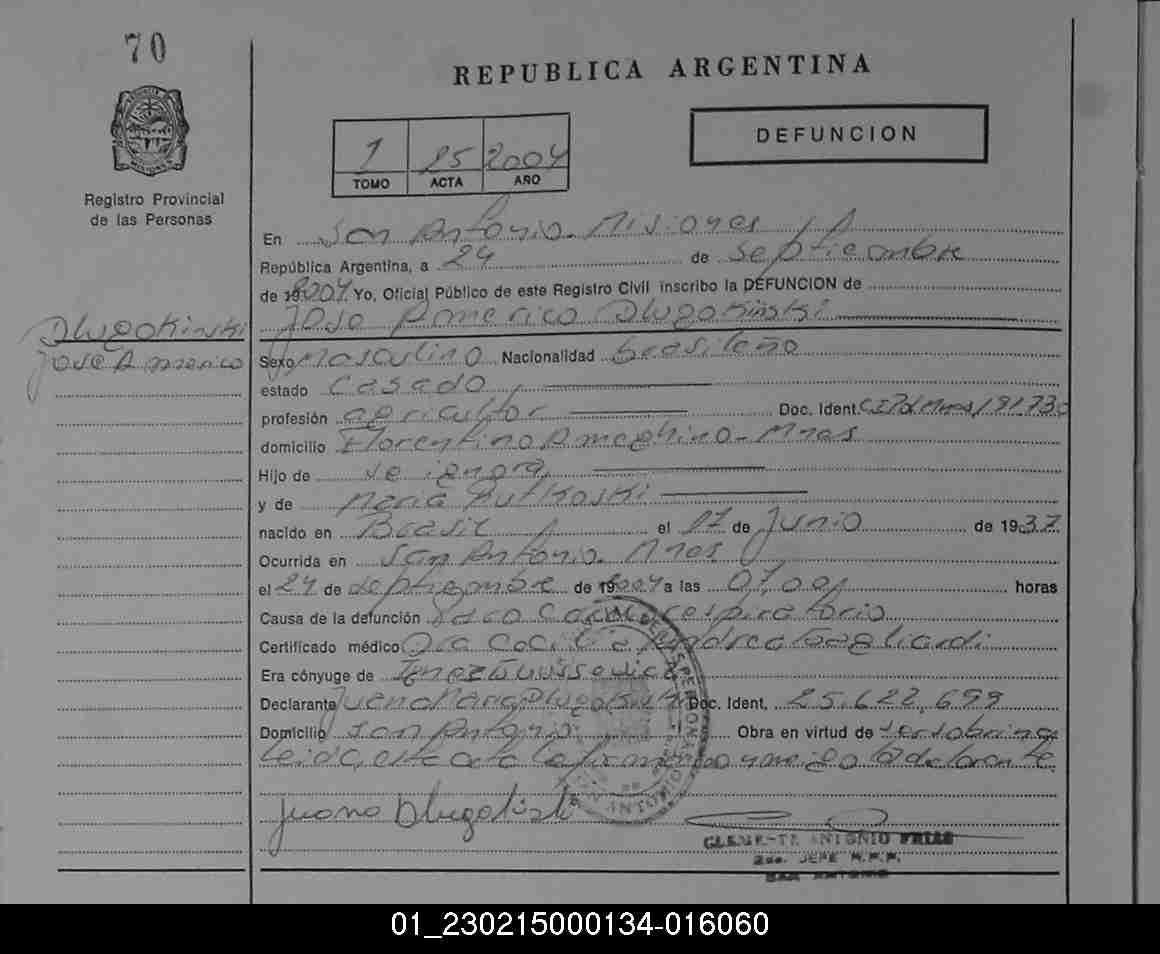 70
REPUBLICA ARGENTINA
DEFUNCION
1 25 2004
TOMO ACTA AÑO
Registro Provincial
de las Personas
En San Antonio. Misiones
República Argentina, a 24 de septiembre
de 2004 Yo, Oficial Público de este Registro Civil inscribo la DEFUNCION de
Jose Americo Dlugokinski
Dlugokinski
Jose Americo
Sexo Masculino Nacionalidad brasileño
estado Casado
profesión agricultor Doc. Ident.
domicilio Florentino Ameghino - Mnes
Hijo de se ignora
y de Maria Rutkoski
nacido en Brasil el 17 de Junio de 1937
Ocurrida en San Antonio. Mnes
el 24 de septiembre de 2004 a las 07,00 horas
Causa de la defunción Paro Cardiorespiratorio
Certificado médico Dra Cecilia Andrea Gagliardi
Era cónyuge de
Declarante Juana Maria Doc. Ident. 25.622.699
Domicilio San Antonio Obra en virtud de ser sobrina
Leida este acta la firma conmigo la declarante
Juana
CLEMENTE ANTONIO FRIAS
JEFE R.P.P.
SAN ANTONIO
01_230215000134-016060